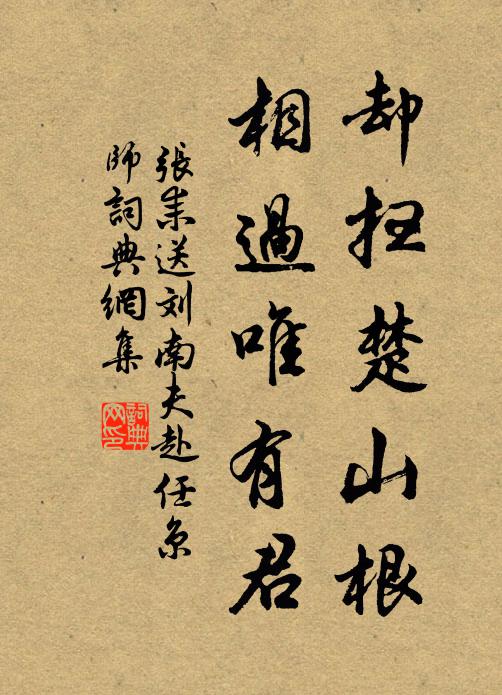 却扫楚山根
相過唯有君
張耒送刘南夫赴任京
師詞典網集
詞典网印